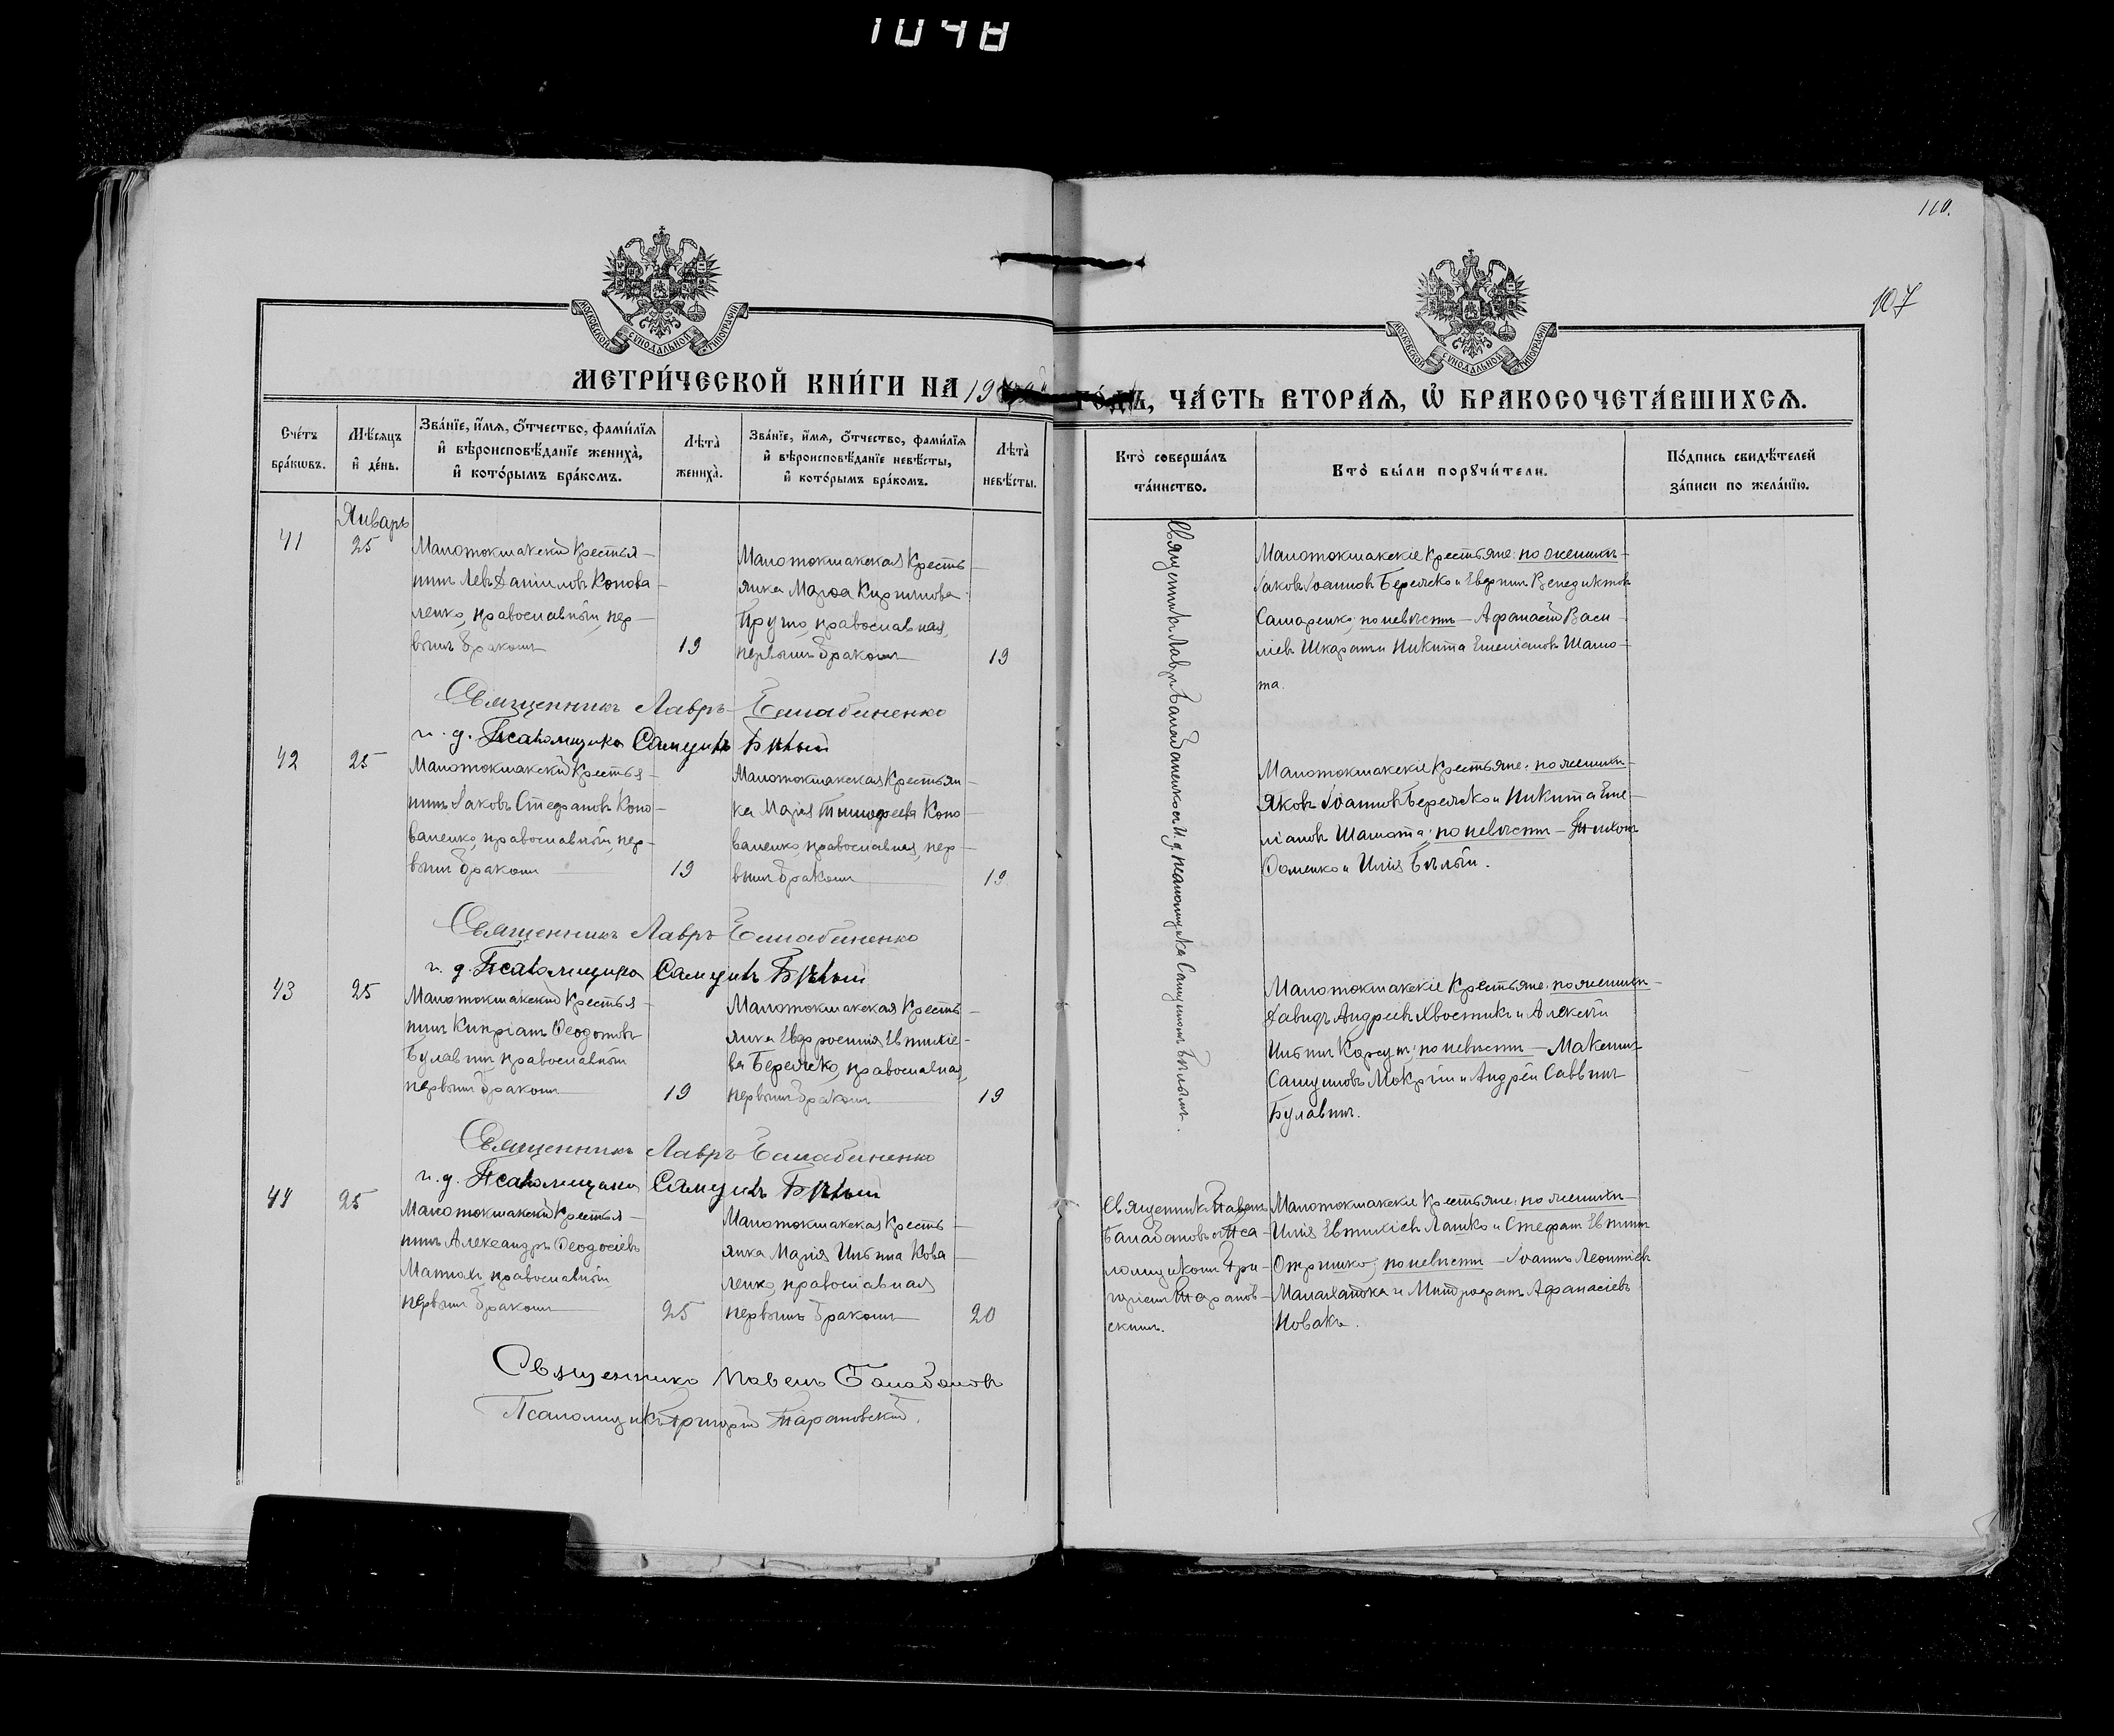 1048
110.
107
МОСКОВСКОЙ СѴНОДАЛЬНОЙ ТИПОГРАФІИ
МОСКОВСКОЙ СѴНОДАЛЬНОЙ ТИПОГРАФІИ
МЕТРИ́ЧЕСКОЙ КНИ́ГИ НА 19
ГО́ДЪ, ЧА́СТЬ ВТОРА́Ѧ, Ѽ БРАКОСОЧЕТА́ВШИХСѦ.
Сче́тъ бра́кѡвъ.
Мѣ́сѧцъ и҆ де́нь.
Зва́нїе, и҆́мѧ, ѻ҆́тчество, фами́лїѧ и҆ вѣроисповѣ́данїе жениха̀, и҆ кото́рымъ бра́комъ.
Лѣ́та̀ жениха̀.
Зва́нїе, и҆́мѧ, ѻ҆́тчество, фами́лїѧ и҆ вѣроисповѣ́данїе невѣ́сты, и҆ кото́рымъ бра́комъ.
Лѣ́та̀ невѣ́сты.
Кто̀ соверша́лъ та́инство.
Кто̀ бы́ли порꙋчи́тели.
По́дпись свидѣ́телей за́писи по жела́нїю.
Январь
41
25
Малотокмакскій Крестья-
нинъ Левъ Даніиловъ Конова-
ленко, православный, пер-
вымъ бракомъ
19
Малотокмакская Кресть-
янка Марѳа Кириллова
православная,
первымъ бракомъ
19
Малотокмакскіе Крестьяне: по женихѣ-
Іаковъ Іоанновъ Бережко и Евфимъ Венедиктовъ
Самаренко; по невѣстѣ - Афанасій Васи-
ліевъ и Никита Емеліановъ Шамо-
та.
Священникъ Лавръ Балабаненко
и. д. Псаломщика Самуилъ Бѣлый
42
25
Малотокмакскій Крестья-
нинъ Іаковъ Стефановъ Коно-
валенко, православный, пер-
вымъ бракомъ
19
Малотокмакская Крестьян-
ка Марія Тимофеева Коно-
валенко, православная, пер-
вымъ бракомъ
19
Малотокмакскіе Крестьяне: по женихѣ-
Яковъ Іоанновъ Бережко и Никита Еме-
ліановъ Шамота; по невѣстѣ -
Ѳоменко и Илія Бѣлый.
Священникъ Лавръ Балабаненко
и. д. Псаломщика Самуилъ Бѣлый
Священникъ Лавръ Балабаненко и И. д. псаломщика Самуиломъ Бѣлымъ.
43
25
Малотокмакскій Крестья-
нинъ Кипріанъ Ѳеодотовъ
Булавинъ православный
первымъ бракомъ
19
Малотокмакская Кресть-
янка Евфросинія Евтихіе-
ва Бережко, православная,
первымъ бракомъ
19
Малотокмакскіе Крестьяне: по женихѣ-
Давидъ Андреевъ Хвостикъ и Алексѣй
Ильинъ Коржъ; по невѣстѣ - Максимъ
Самуиловъ Мокрій и Андрей Саввинъ
Булавинъ.
Священникъ Лавръ Балабаненко
и. д. Псаломщика Самуилъ Бѣлый
44
25
Малотокмакскій Крестья-
нинъ Александръ Ѳеодосіевъ
православный,
первымъ бракомъ
25
Малотокмакская Кресть-
янка Марія Ильина Кова-
ленко, православная
первымъ бракомъ
20
Священникъ Павелъ
Балабановъ съ Пса-
ломщикомъ Гри-
горіемъ Тарановъ-
скимъ.
Малотокмакскіе Крестьяне: по женихѣ-
Илія Евтихіевъ Лашко и Стефанъ Евтихи
по невѣстѣ - Іоаннъ Леонтіевъ
и Митрофанъ Афанасіевъ
Новакъ.
Священникъ Павелъ Балабановъ
Псаломщикъ Григорій Тарановскій.